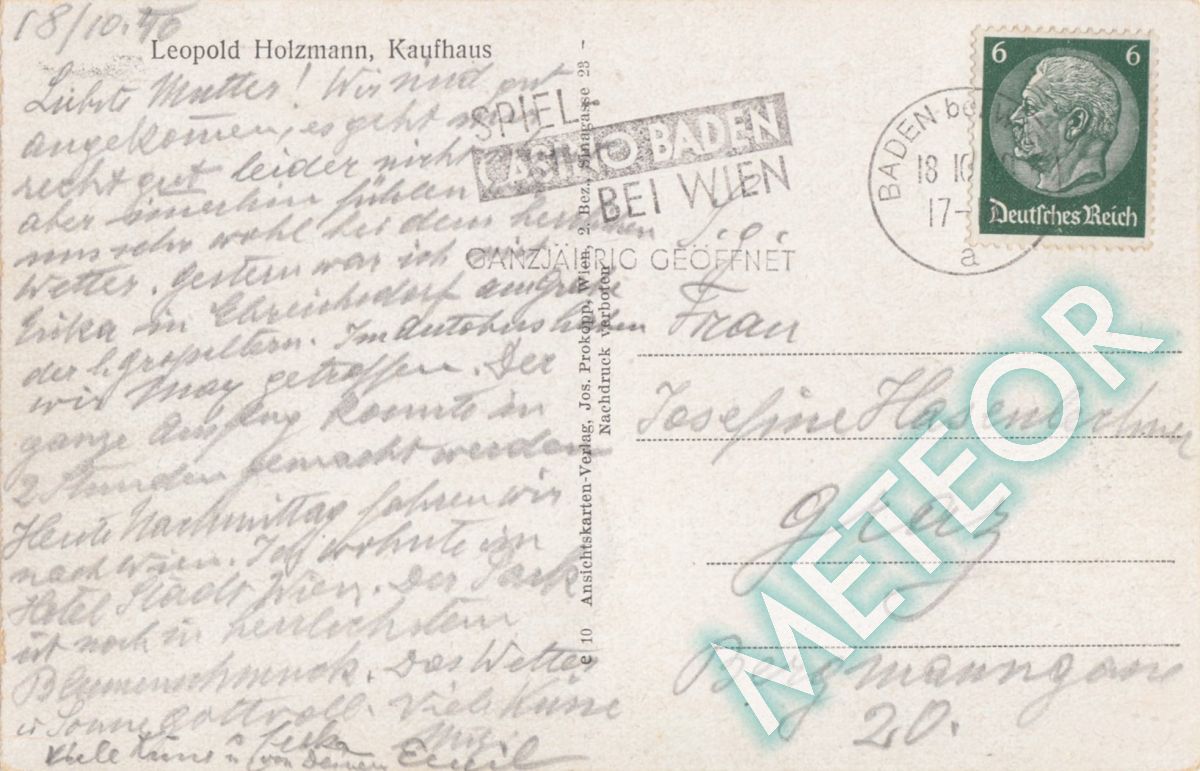 18/10.40
Leopold Holzmann, Kaufhaus
Liebste Mutter! Wir sind gut
angekommen, es geht mir
recht gut leider nicht
aber immerhin fühlen
uns sehr wohl bei dem herrlichen
Wetter. gestern war ich
Erika in Ebreichsdorf am Grabe
der l. Grosseltern. Im Autobus haben
wir getroffen. Der
ganze Ausflug konnte in
2 Stunden gemacht werden
Heute Nachmittag fahren wir
nach Wien. Ich wohnte im
Hotel Stadt Wien. Der Park
ist noch in herrlichstem
Blumenschmuck. Das Wetter
u Sonne gottvoll. Viele Küsse
Mizi
Viele Küsse u von Deinem Emil
e 10 Ansichtskarten-Verlag, Jos. Prokopp, Wien, 2. Bez., Sinagasse 23 -
Nachdruck verboten
SPIEL-
CASINO BADEN
BEI WIEN
GANZJÄHRIG GEÖFFNET
BADEN be
18 10
17-
a
6 6
Deutsches Reich
Frau
Josefine Hasenlechner
Graz
Bergmanngasse
20.
METEOR